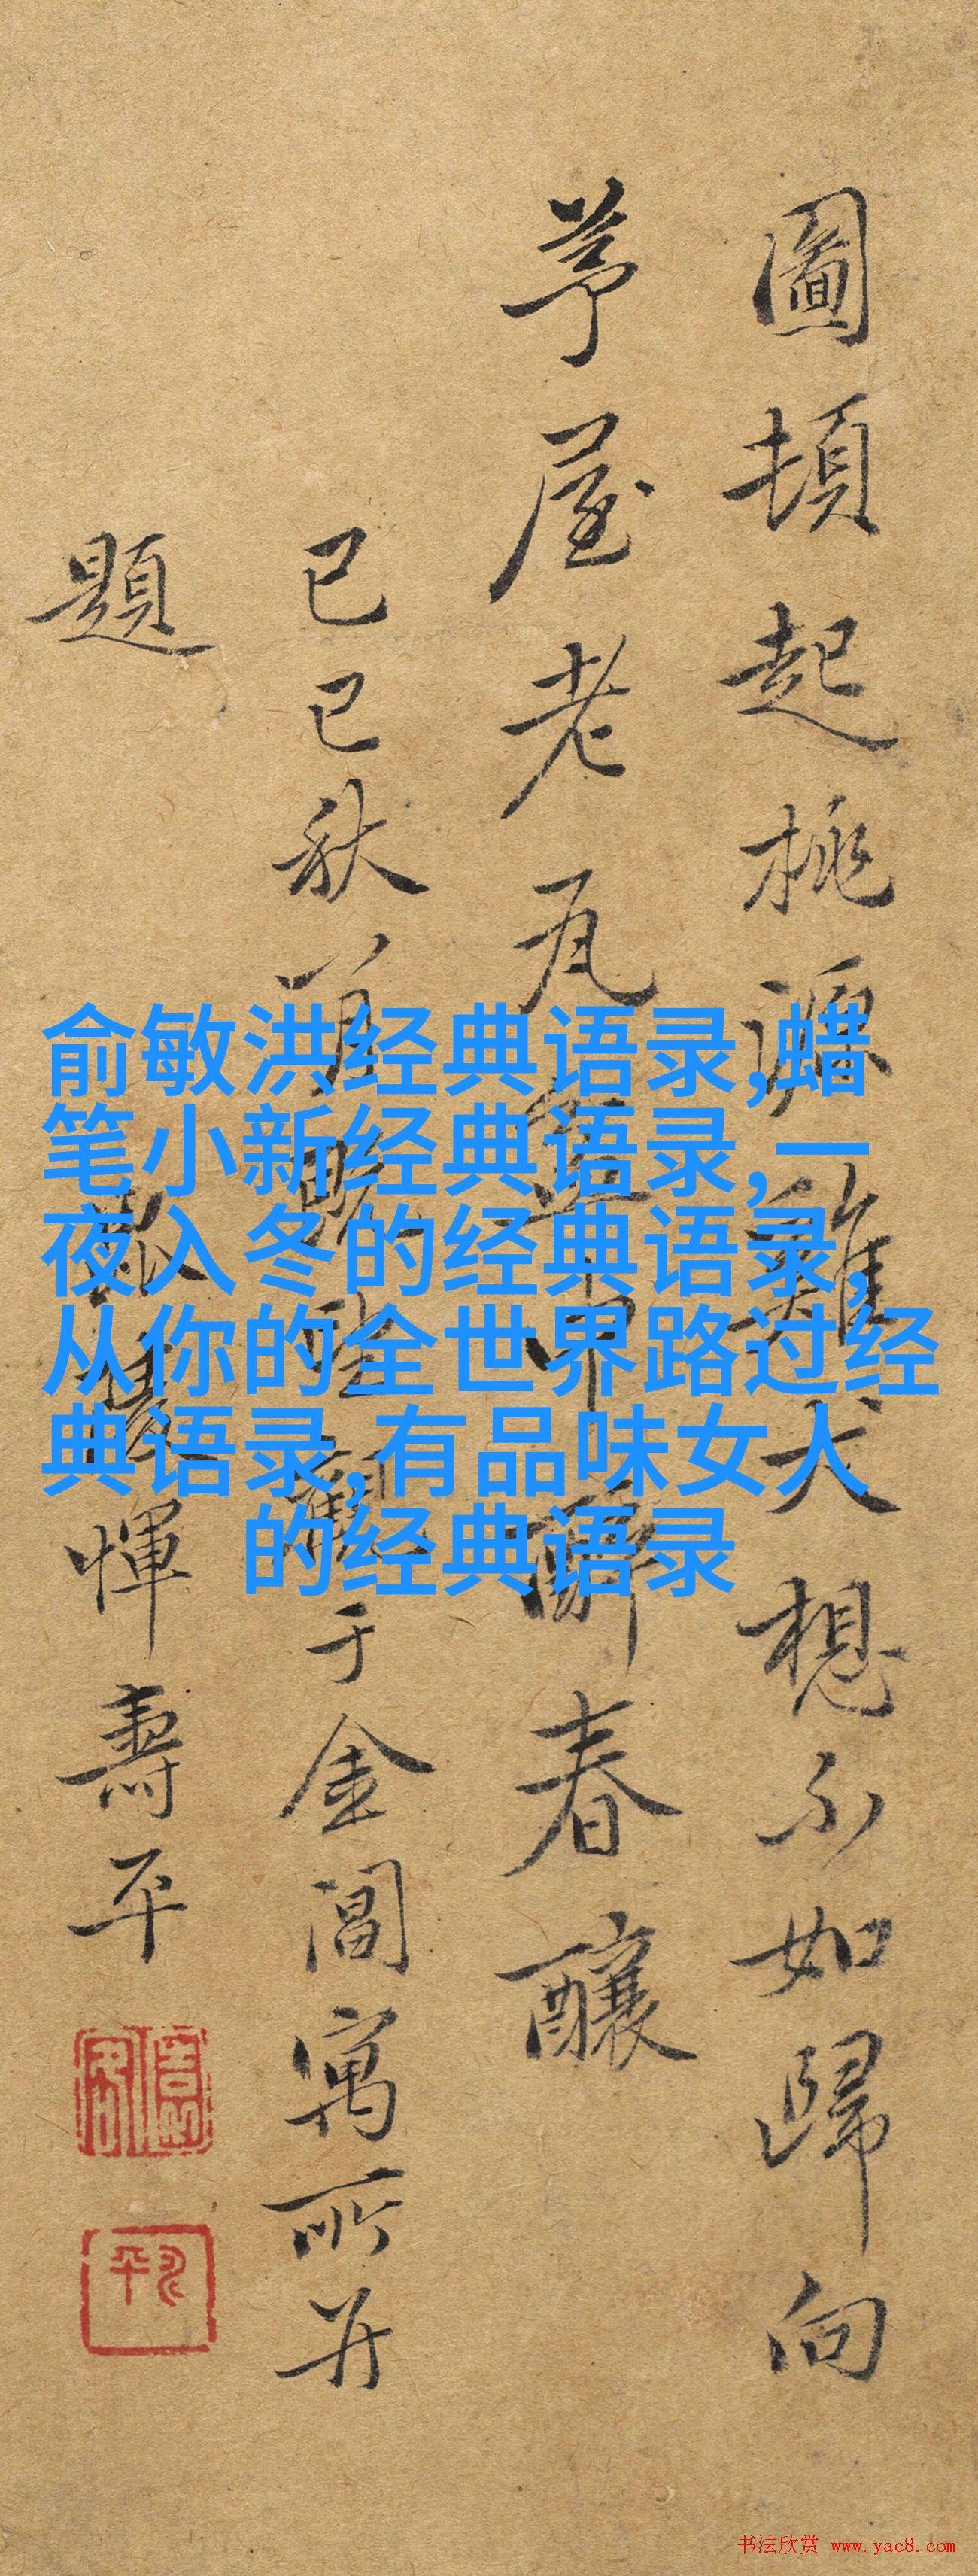 圖頓起桃源雞犬想不如歸向
茅屋老瓦盆中醉春釀
己巳秋八月
于金閶寓所并
題
惲壽平
俞敏洪经典语录,蜡
笔小新经典语录,一
夜入冬的经典语录,
从你的全世界路过经
典语录,有品味女人
的经典语录
书法欣赏 www.yac8.com